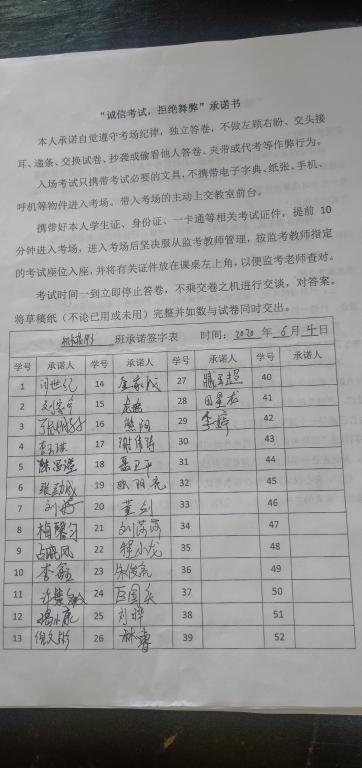 “诚信考试，拒绝舞弊”承诺书
本人承诺自觉遵守考场纪律，独立答卷，不做左顾右盼、交头接
耳、递条、交换试卷、抄袭或偷看他人答卷、夹带或代考等作弊行为。
入场考试只携带考试必要的文具，不携带电子字典、纸张、手机、
呼机等物件进入考场。带入考场的主动上交教室前台。
携带好本人学生证、身份证、一卡通等相关考试证件，提前 10
分钟进入考场，进入考场后坚决服从监考教师管理，按监考教师指定
的考试座位入座，并将有关证件放在课桌左上角，以便监考老师查对。
考试时间一到立即停止答卷，不乘交卷之机进行交谈，对答案。
将草稿纸（不论已用或未用）完整并如数与试卷同时交出。
班承诺签字表 时间：2020 年 6 月 4 日
学号 承诺人 学号 承诺人 学号 承诺人 学号 承诺人
1 闫世纪 14 27 40
2 15 28 41
3 16 熊阳 29 李婷 42
4 17 30 43
5 18 聂卫平 31 44
6 19 欧阳亮 32 45
7 刘婷 20 董剑 33 46
8 梅馨匀 21 刘莎莎 34 47
9 占晓凤 22 程小龙 35 48
10 李鑫 23 朱俊亮 36 49
11 24 37 50
12 杨小康 25 刘晔 38 51
13 倪文彬 26 林睿 39 52